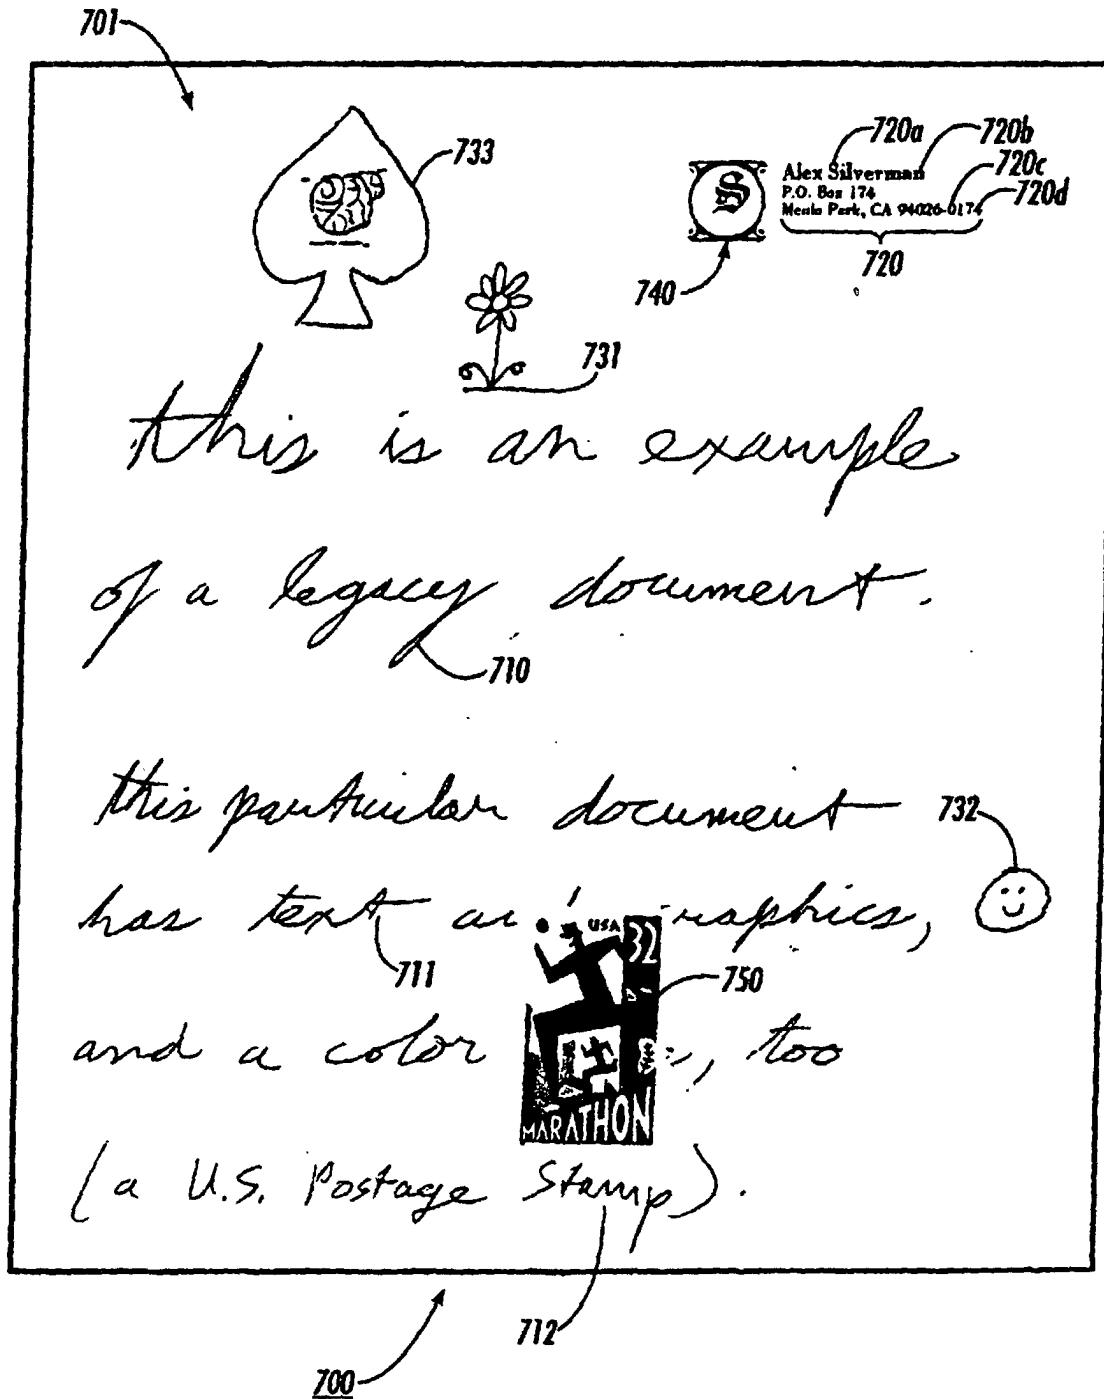 701
733
720a
720b
S
Alex Silverman
720c
P.O. Box 174
720d
Menlo Park, CA 94026-0174
720
740
731
this is an example
of a legacy document.
710
this particular document
732
has text an raphics,
USA 32
711
750
and a color , too
MARATHON
(a U.S. Postage Stamp).
712
700